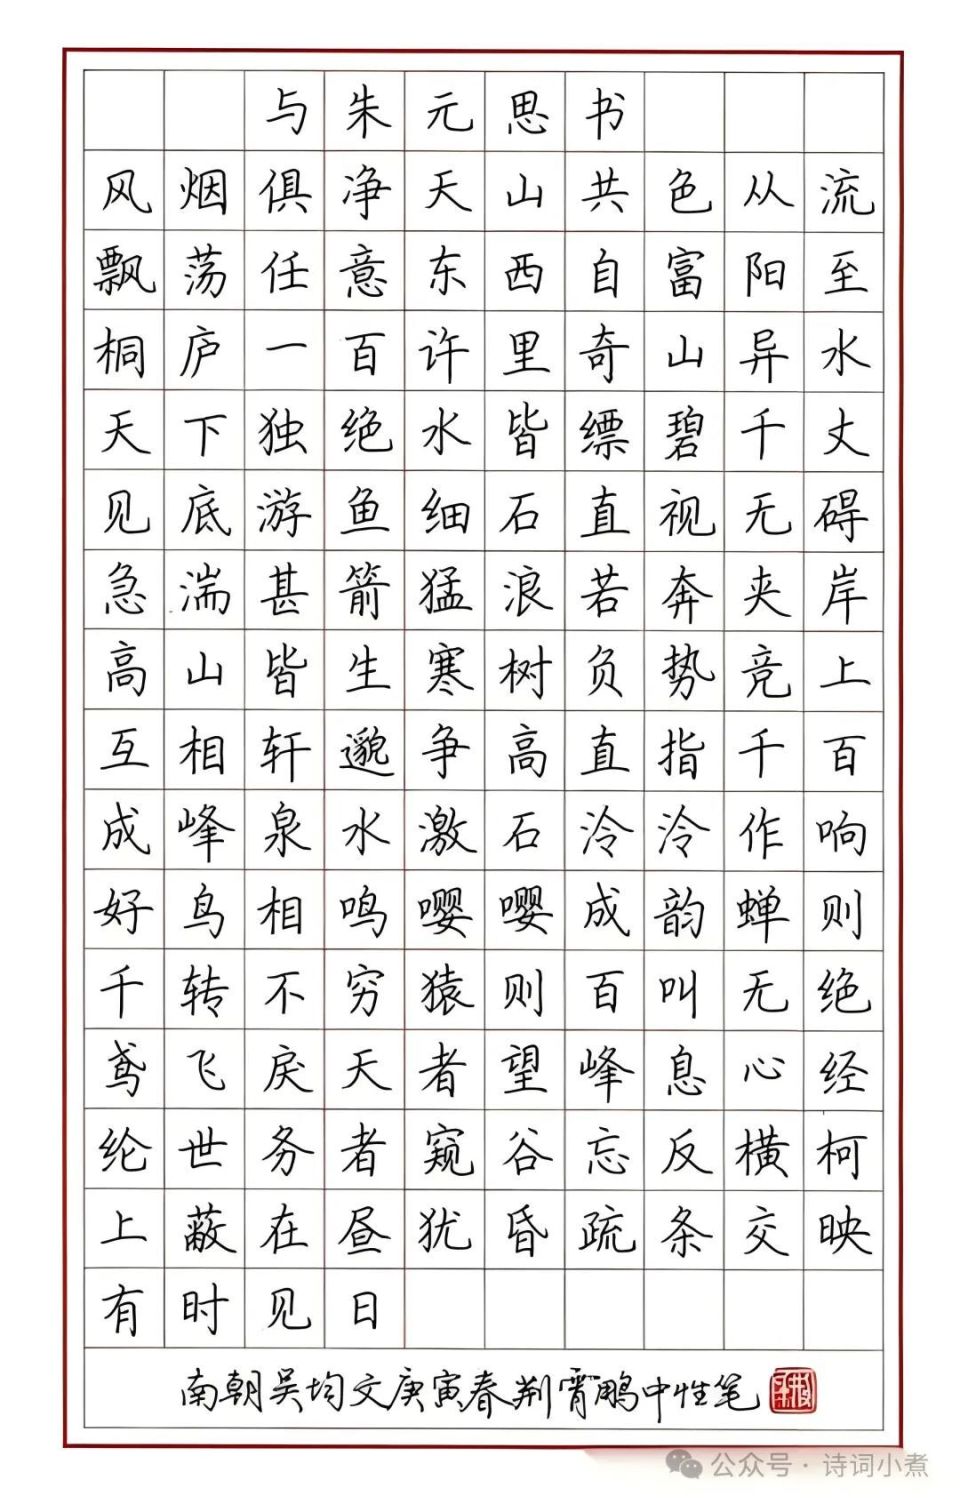 与朱元思书
风烟俱净天山共色从流
飘荡任意东西自富阳至
桐庐一百许里奇山异水
天下独绝水皆缥碧千丈
见底游鱼细石直视无碍
急湍甚箭猛浪若奔夹岸
高山皆生寒树负势竞上
互相轩邈争高直指千百
成峰泉水激石泠泠作响
好鸟相鸣嘤嘤成韵蝉则
千转不穷猿则百叫无绝
鸢飞戾天者望峰息心经
纶世务者窥谷忘反横柯
上蔽在昼犹昏疏条交映
有时见日
南朝吴均文庚寅春荆霄鹏中性笔
公众号·诗词小煮